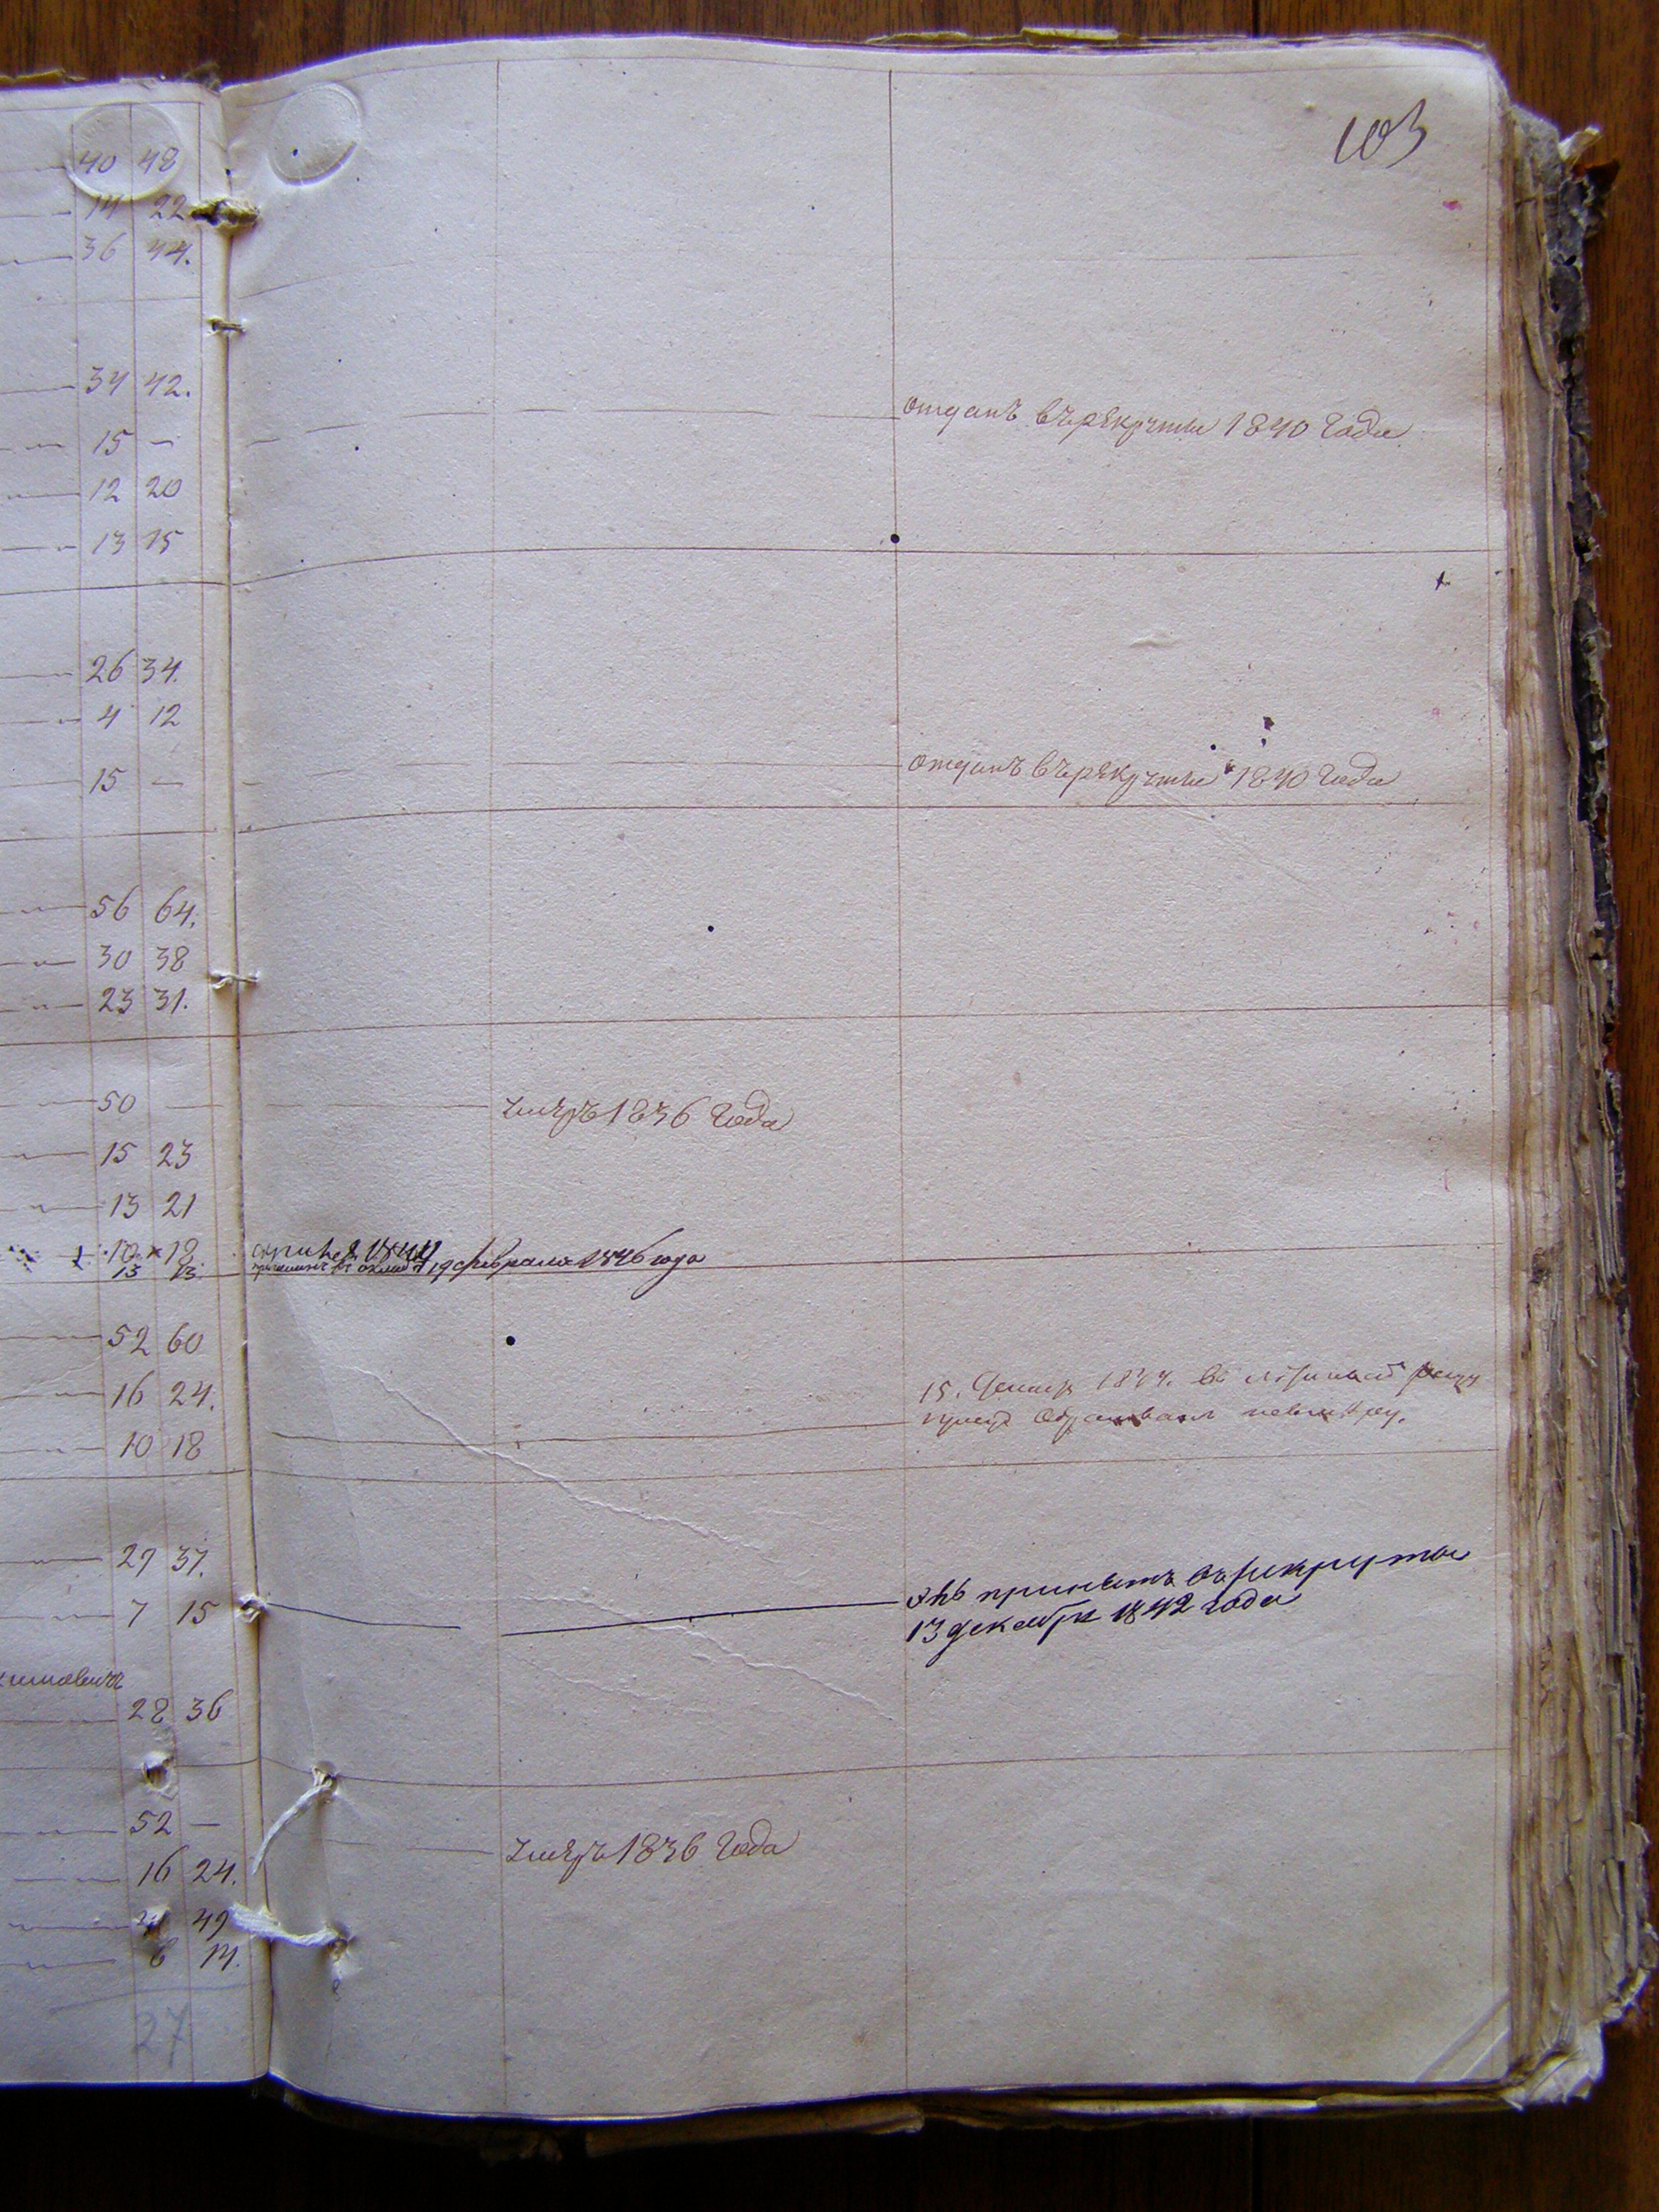 103
40 48
14 22
36 44.
34 42.
отданъ въ рекруты 1840 года
15 —
12 20
13 15
26 34.
4 12
15 —
отданъ въ рекруты 1840 года
56 64.
30 38
23 31.
50 —
умеръ 1836 года
15 23
13 21
10 18
13 13.
19 февраля 1846 года
52 60
16 24.
15. 1844. въ
10 18
29 37.
принятъ въ рекруты
7 15
13 декабря 1842 года
28 36
52 —
умеръ 1836 года
16 24.
41 49
6 14.
27